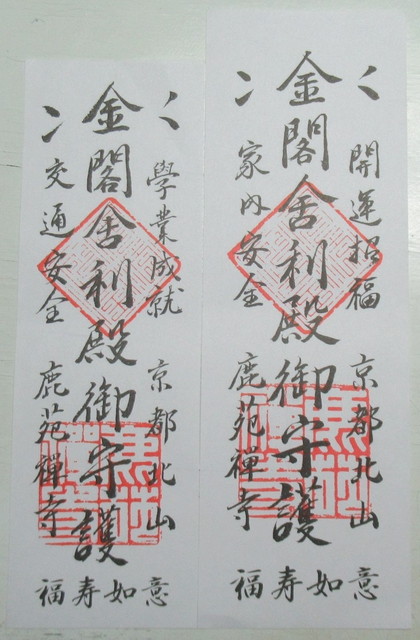 開運招福
京都北山
金閣舎利殿御守護
家内安全
鹿苑禅寺
福寿如意
學業成就
京都北山
金閣舎利殿御守護
交通安全
鹿苑禅寺
福寿如意